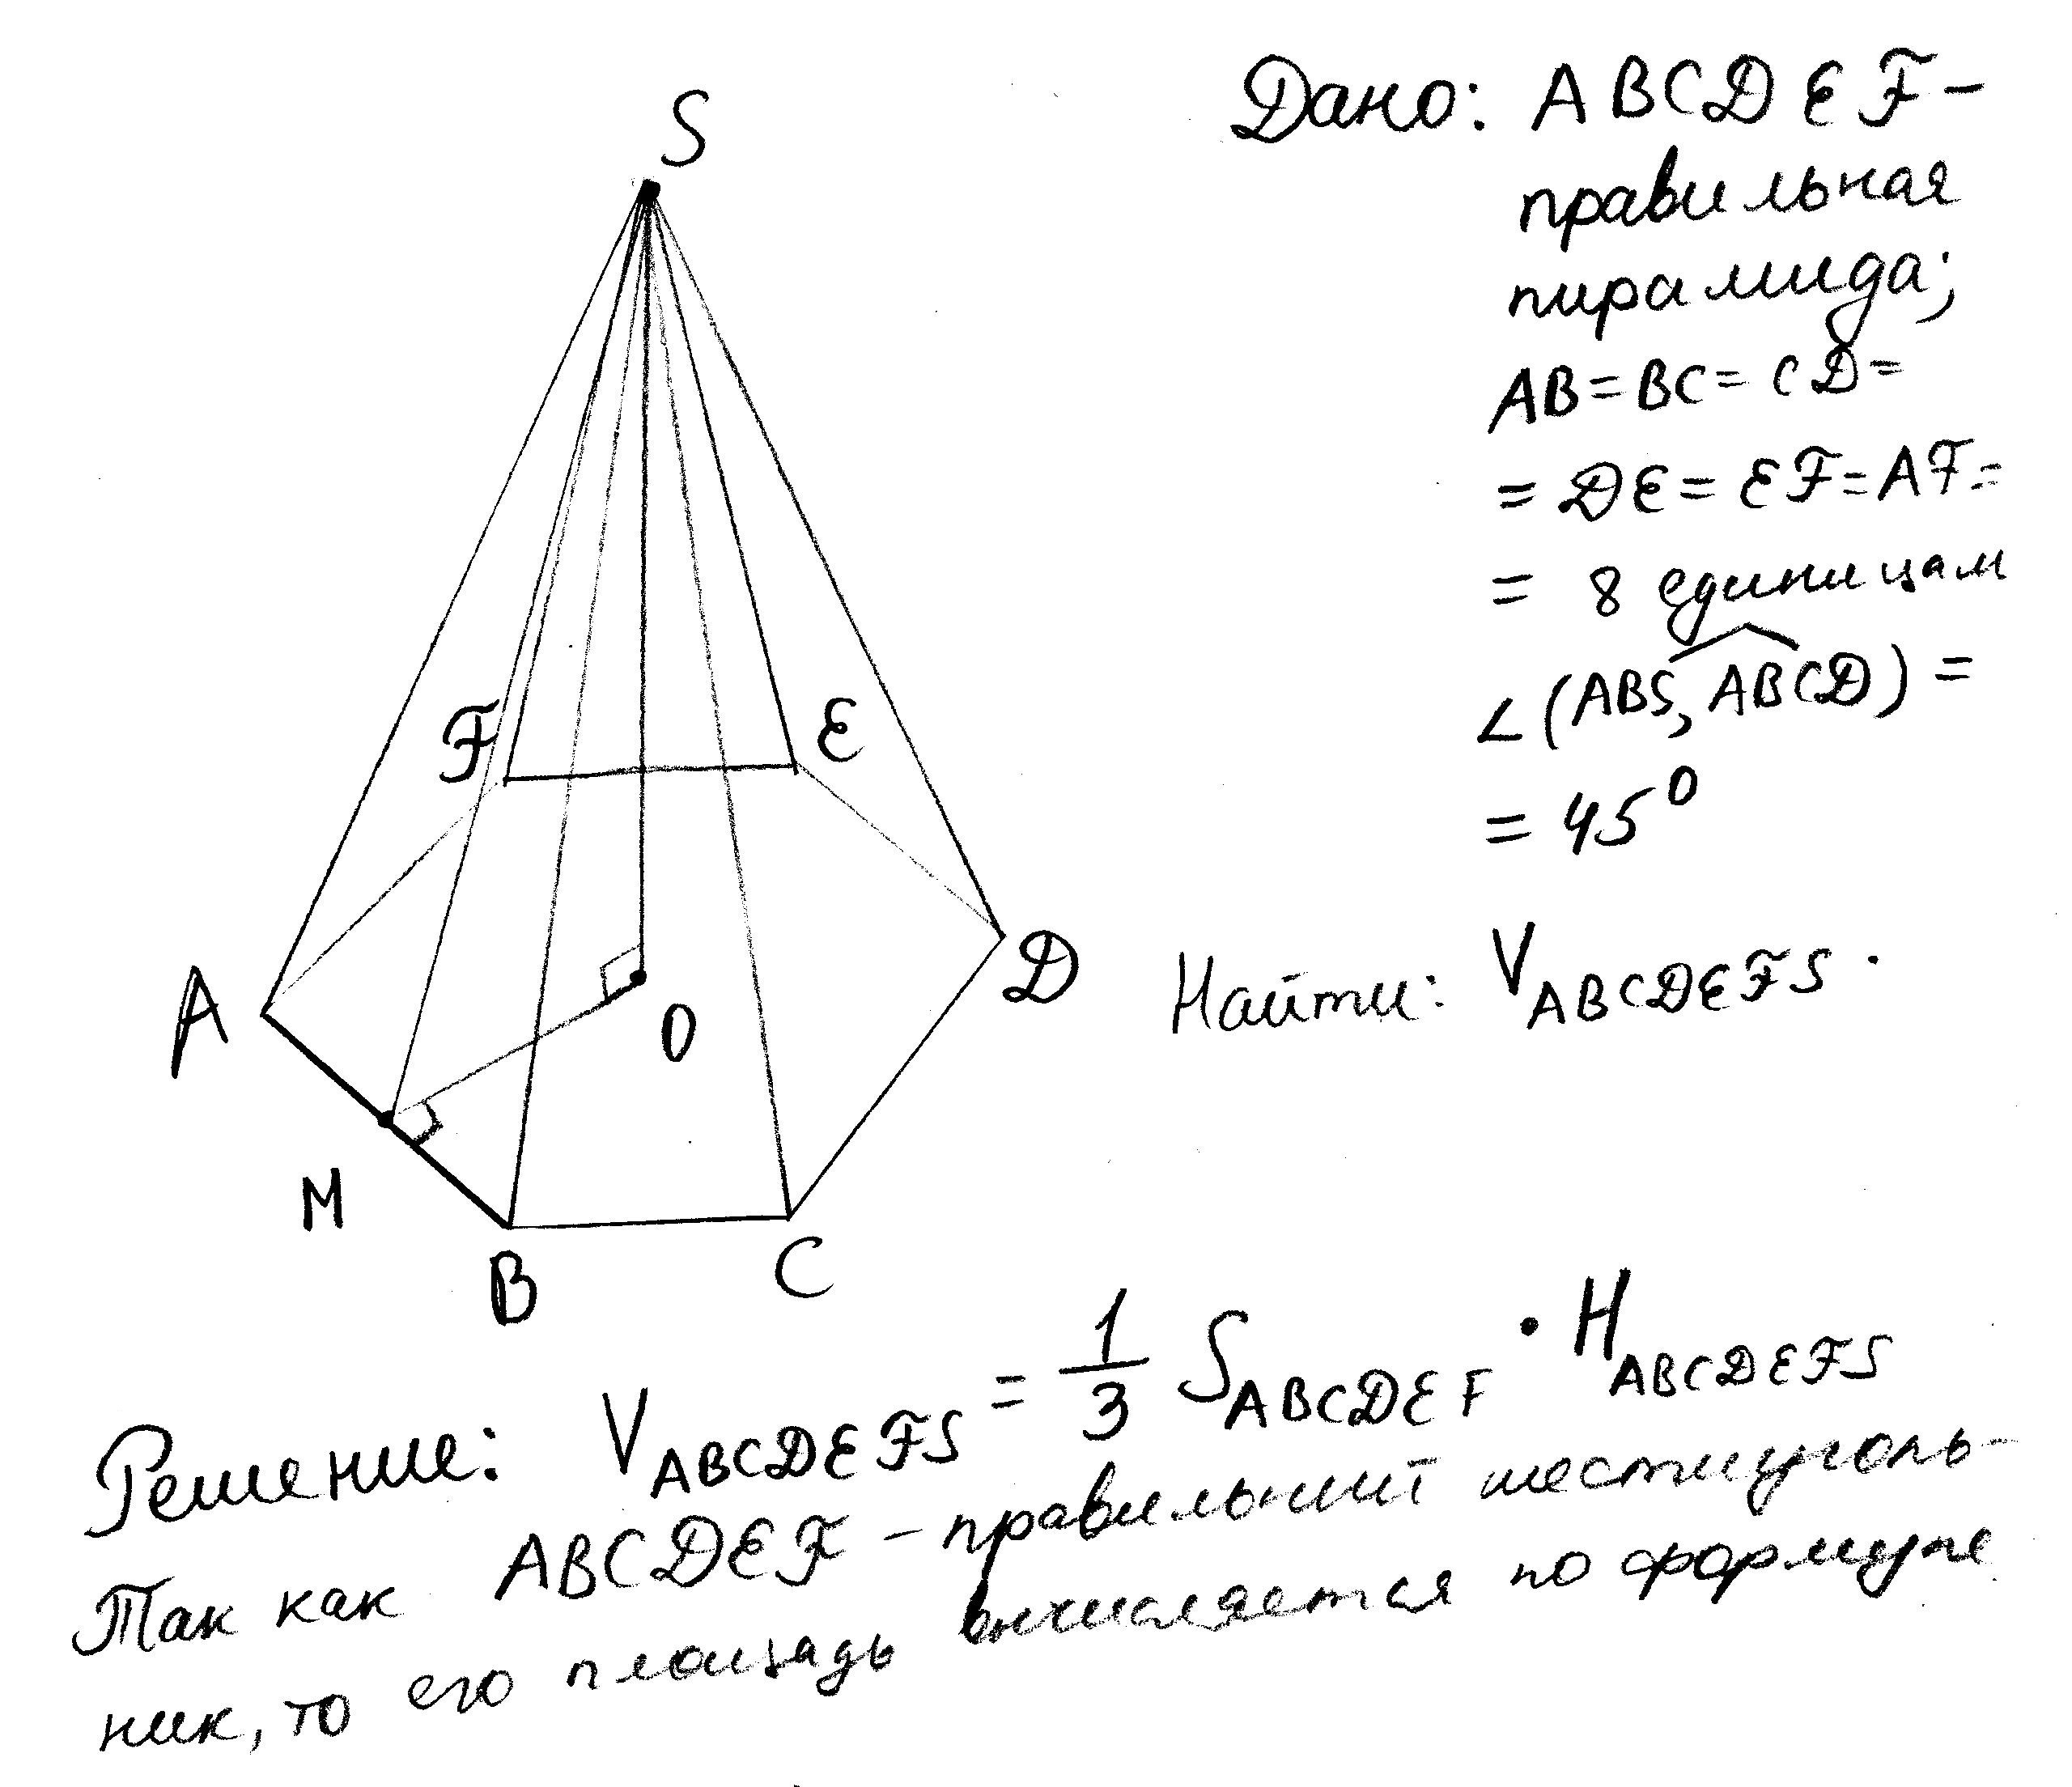 S
Дано: ABCDEF –
правильная
пирамида;
AB = BC = CD =
= DE = EF = AF =
= 8 единицам
∠(ABS, ABCD) =
= 45°
F
E
A
O
D
Найти: V ABCDEFS.
M
B
C
Решение: V ABCDEFS = 1/3 S ABCDEF · H ABCDEFS
Так как ABCDEF – правильний шестиуголь-
ник, то его площадь вычисляется по формуле